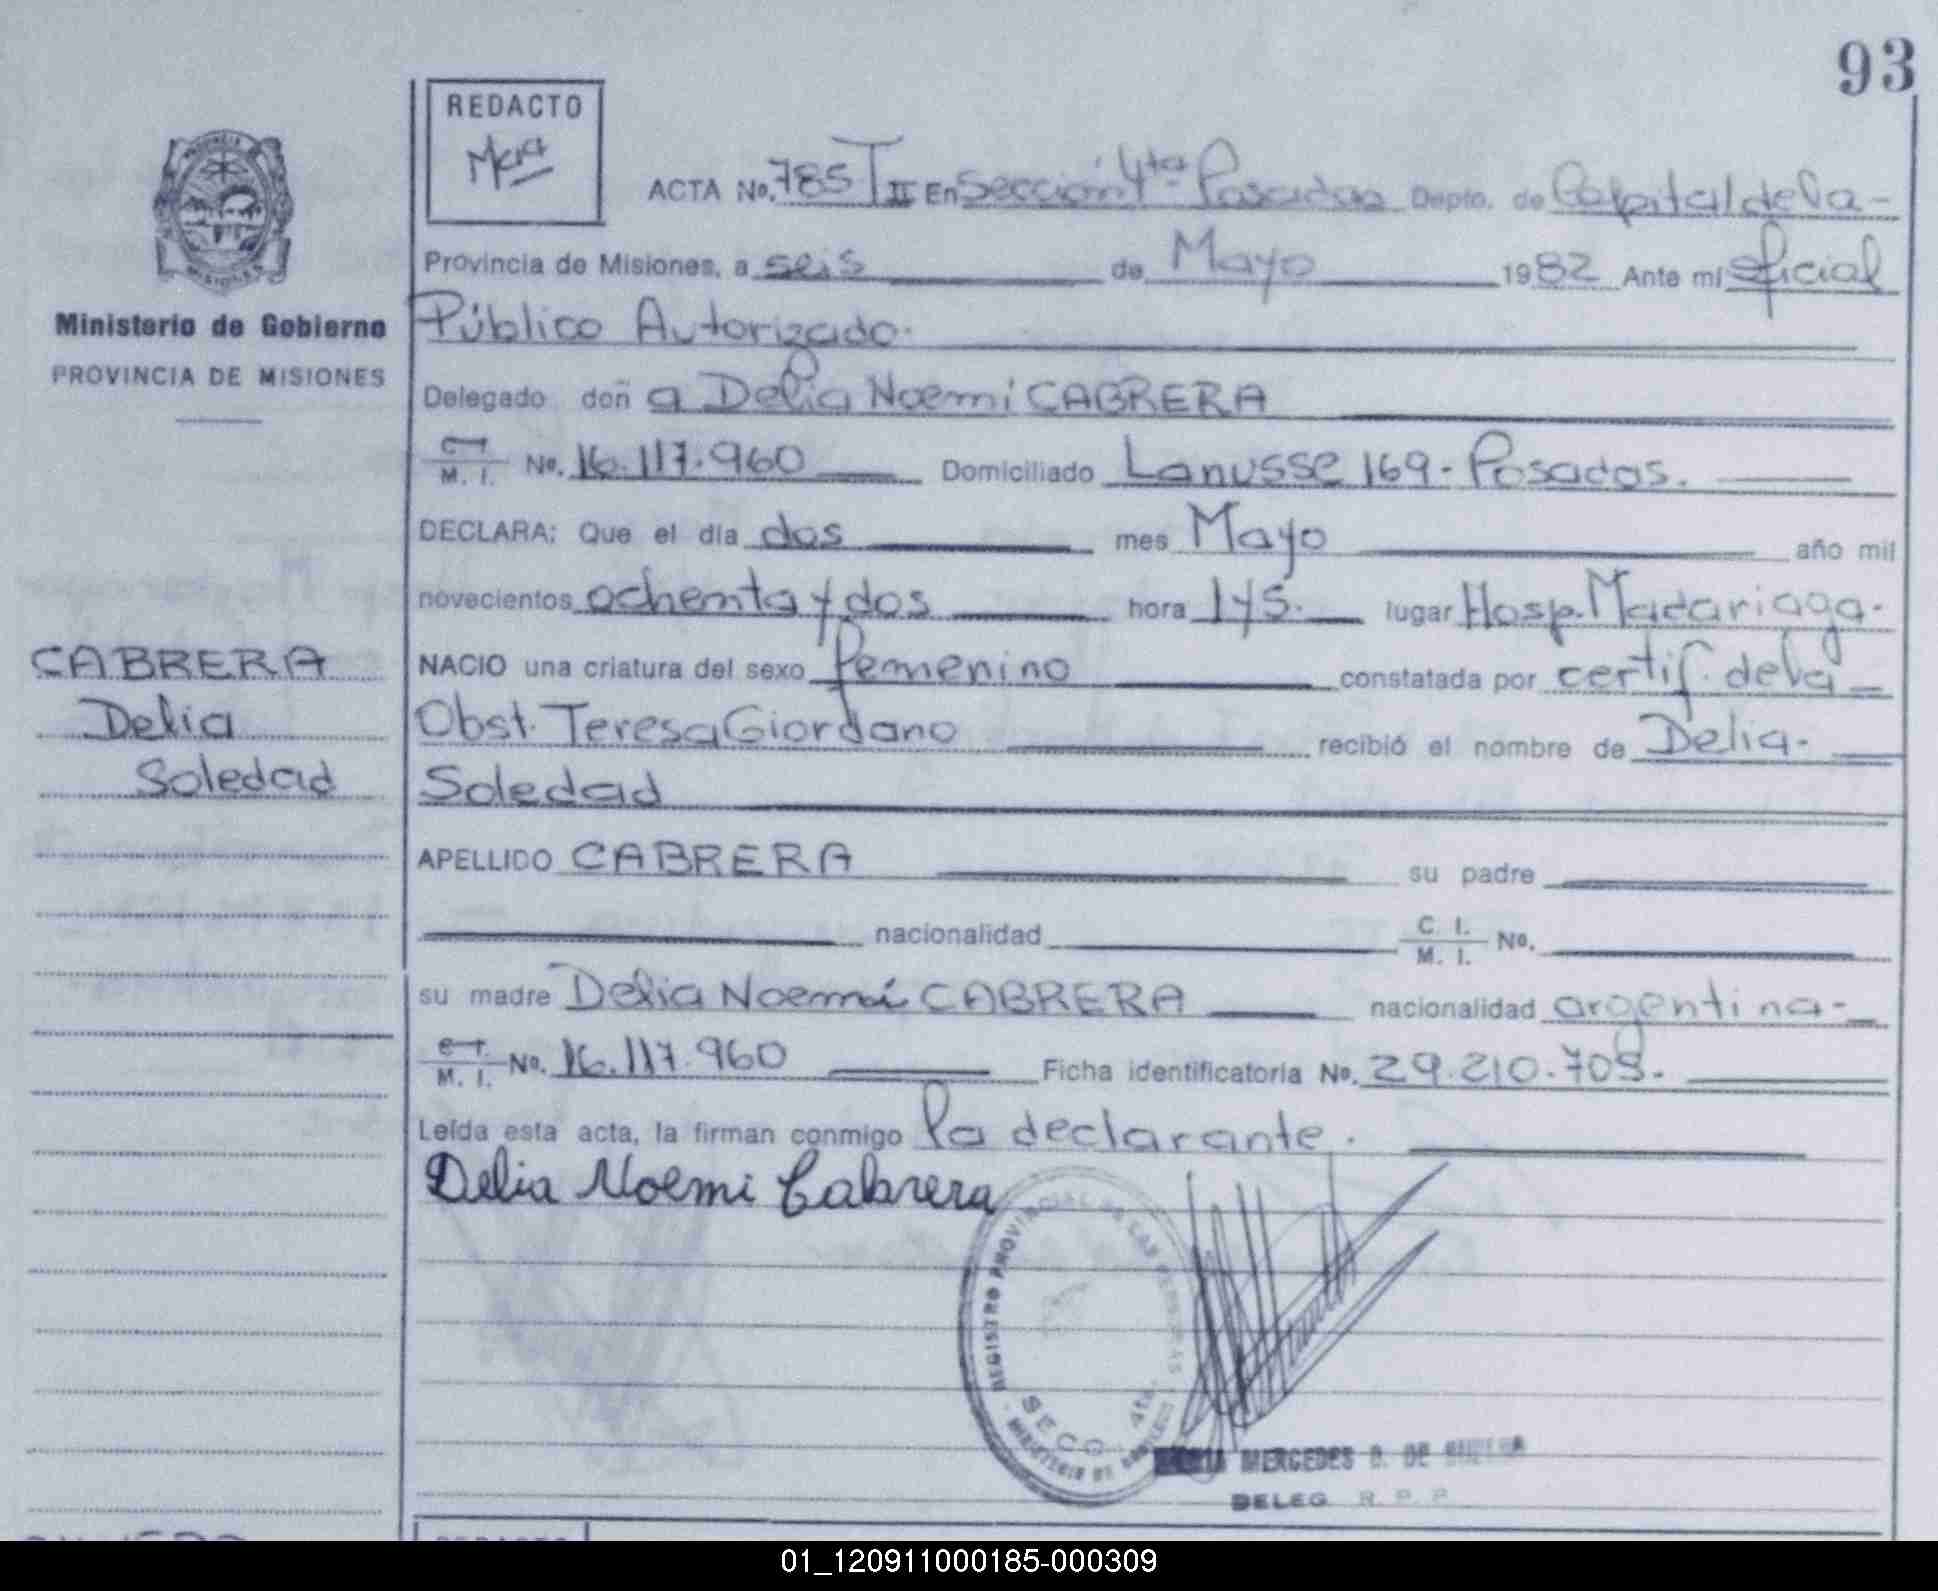 93
REDACTO
ACTA No. 785 T II En Sección 4ta Posadas Depto. de Capital de la-
Provincia de Misiones, a seis de Mayo 1982 Ante mí Oficial
Ministerio de Gobierno
PROVINCIA DE MISIONES
Público Autorizado.
Delegado doñ a Delia Noemí CABRERA
M. I. No. 16.117.960 Domiciliado Lanusse 169-Posadas.
DECLARA: Que el día dos mes Mayo año mil
novecientos ochenta y dos hora 1y5. lugar Hosp. Madariaga.
NACIO una criatura del sexo femenino constatada por certif. de la
Obst. Teresa Giordano recibió el nombre de Delia-
Soledad
CABRERA
Delia
Soledad
APELLIDO CABRERA su padre
nacionalidad C. I. M. I. No.
su madre Delia Noemí CABRERA nacionalidad argentina-
M. I. No. 16.117.960 Ficha identificatoria No. 29.210.709.
Leída esta acta, la firman conmigo la declarante.
Delia Noemi Cabrera
REGISTRO PROVINCIAL DE LAS PERSONAS
MINISTERIO DE
SECC. 4ta.
MERCEDES B. DE
DELEG. R. P. P.
01_120911000185-000309